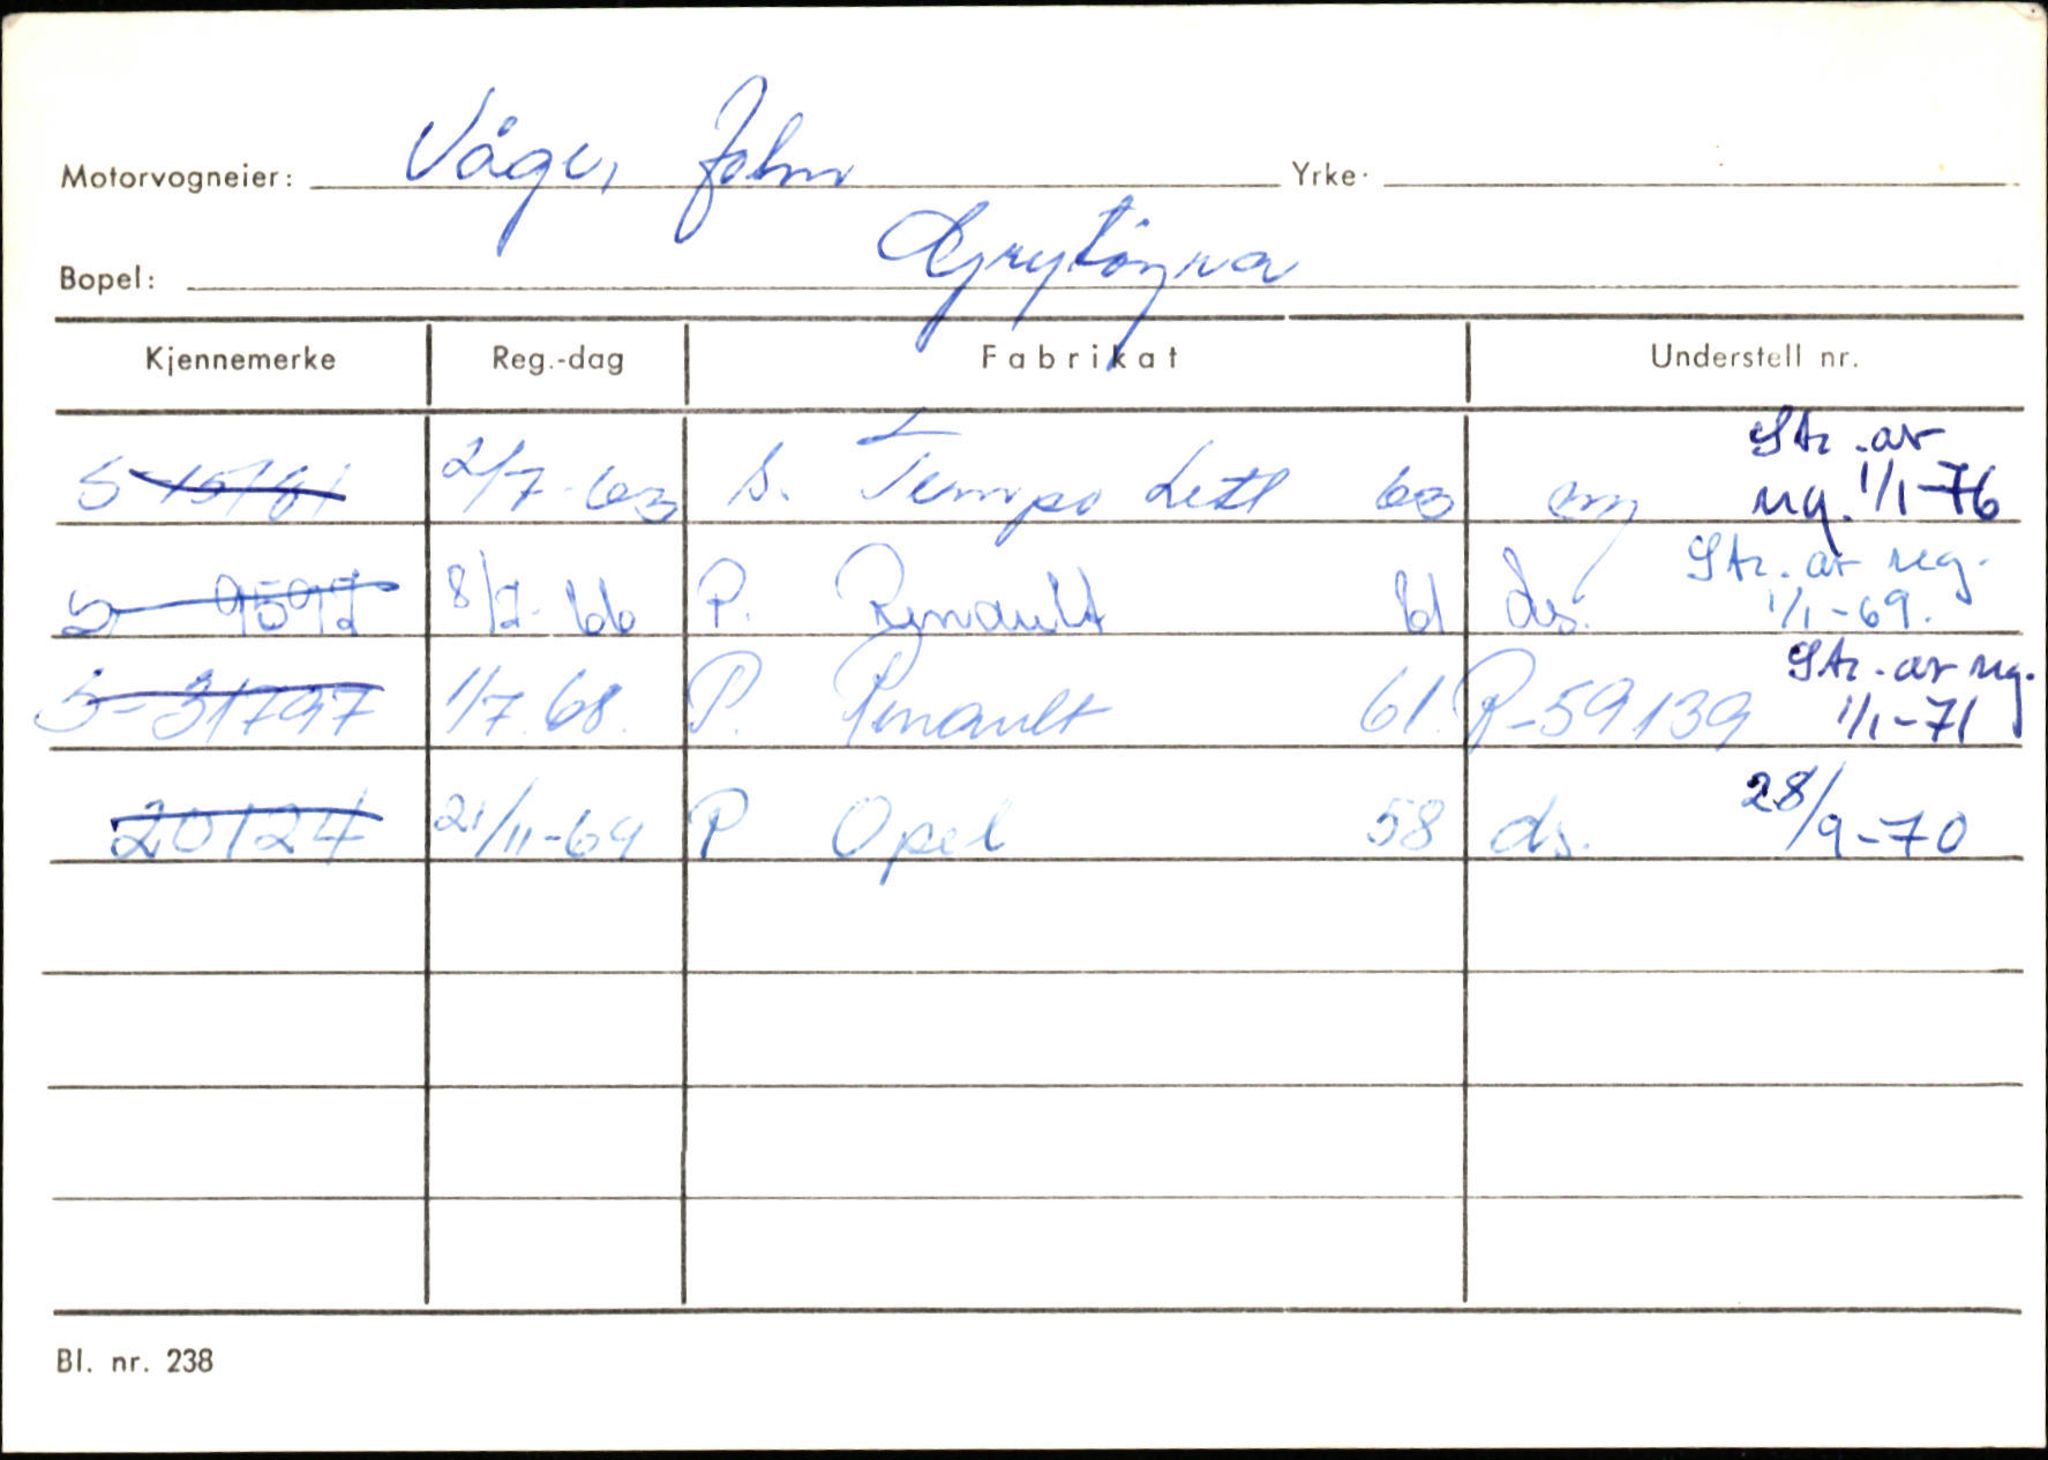 Motorvogneier: Våge, John Yrke.
Bopel: Grytöyra
Kjennemerke Reg.-dag Fabrikat Understell nr.
S-15781 2/7-63 s. Tempo Lett 63 Str. av reg. 1/1-76
S-9597 8/7-66 P. Renault 61 ds. Str. av reg. 1/1-69.
S-31797 1/7.68. P. Renault 61. R-59139 Str. av reg. 1/1-71
20124 21/11-69 P Opel 58 ds. 28/9-70
Bl. nr. 238